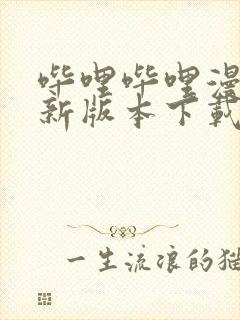 哔哩哔哩漫
新版本下载
一生流浪的猫